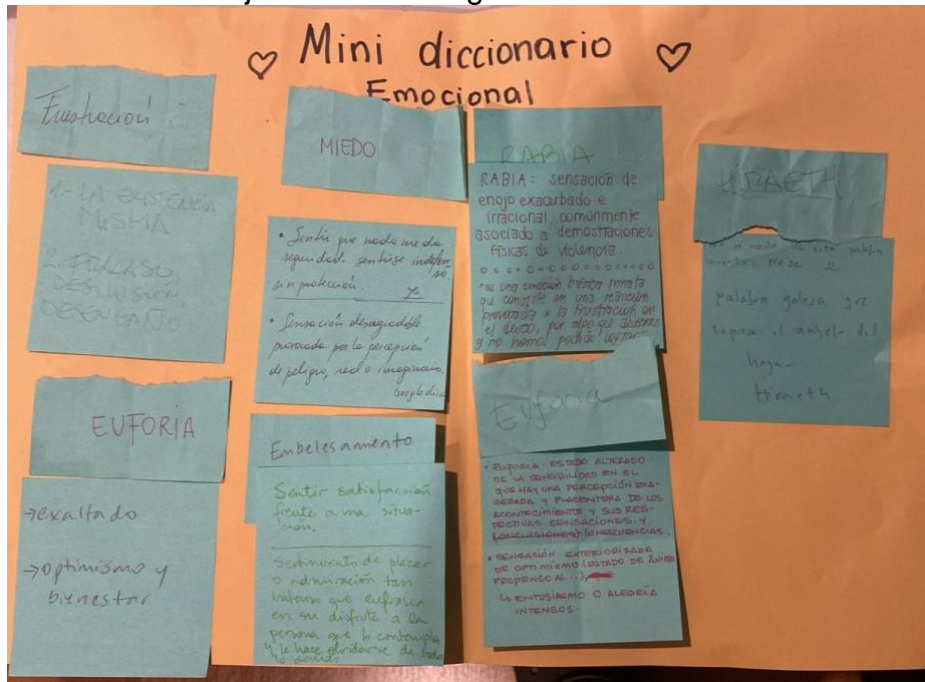 ♡ Mini diccionario ♡
Emocional
Frustración
1- LA EXISTENCIA
MISMA
2- FRACASO,
DESILUSIÓN,
DESENGAÑO
EUFORIA
→exaltado
→optimismo y
bienestar
MIEDO
• Sentir que nada me da
seguridad. sentirse indefen
so
sin protección.
Yo
• Sensación desagradable
provocada por la percepción
de peligro, real o imaginario.
Google dice
Embelesamiento
Sentir satisfacción
frente a una situa-
ción.
Sentimiento de placer
o admiración tan
intenso que
en su disfrute a la
persona que lo contempla
y le hace olvidarse de todo
lo demás
RABIA
RABIA: sensación de
enojo exacerbado e
irracional, comúnmente
asociado a demostraciones
físicas de violencia.
es una emoción básica innata
que consiste en una reacción
provocada x la frustración en
el deseo, por algo que
y no hemos podido lograr
Euforia
• EUFORIA: ESTADO ALTERADO
DE LA SENSIBILIDAD EN EL
QUE HAY UNA PERCEPCIÓN EXA-
GERADA Y PLACENTERA DE LOS
ACONTECIMIENTOS Y SUS RES-
PECTIVAS SENSACIONES Y
(CONCLUSIONES) CONSECUENCIAS.
• SENSACIÓN EXTERIORIZADA
DE OPTIMISMO (ESTADO DE ÁNIMO
PROPENSO AL...)
LO ENTUSIASMO O ALEGRÍA
INTENSOS.
HIRAETH
nada de esta palabra
No se
palabra galesa que
expresa el anhelo del
hogar
Hiraeth